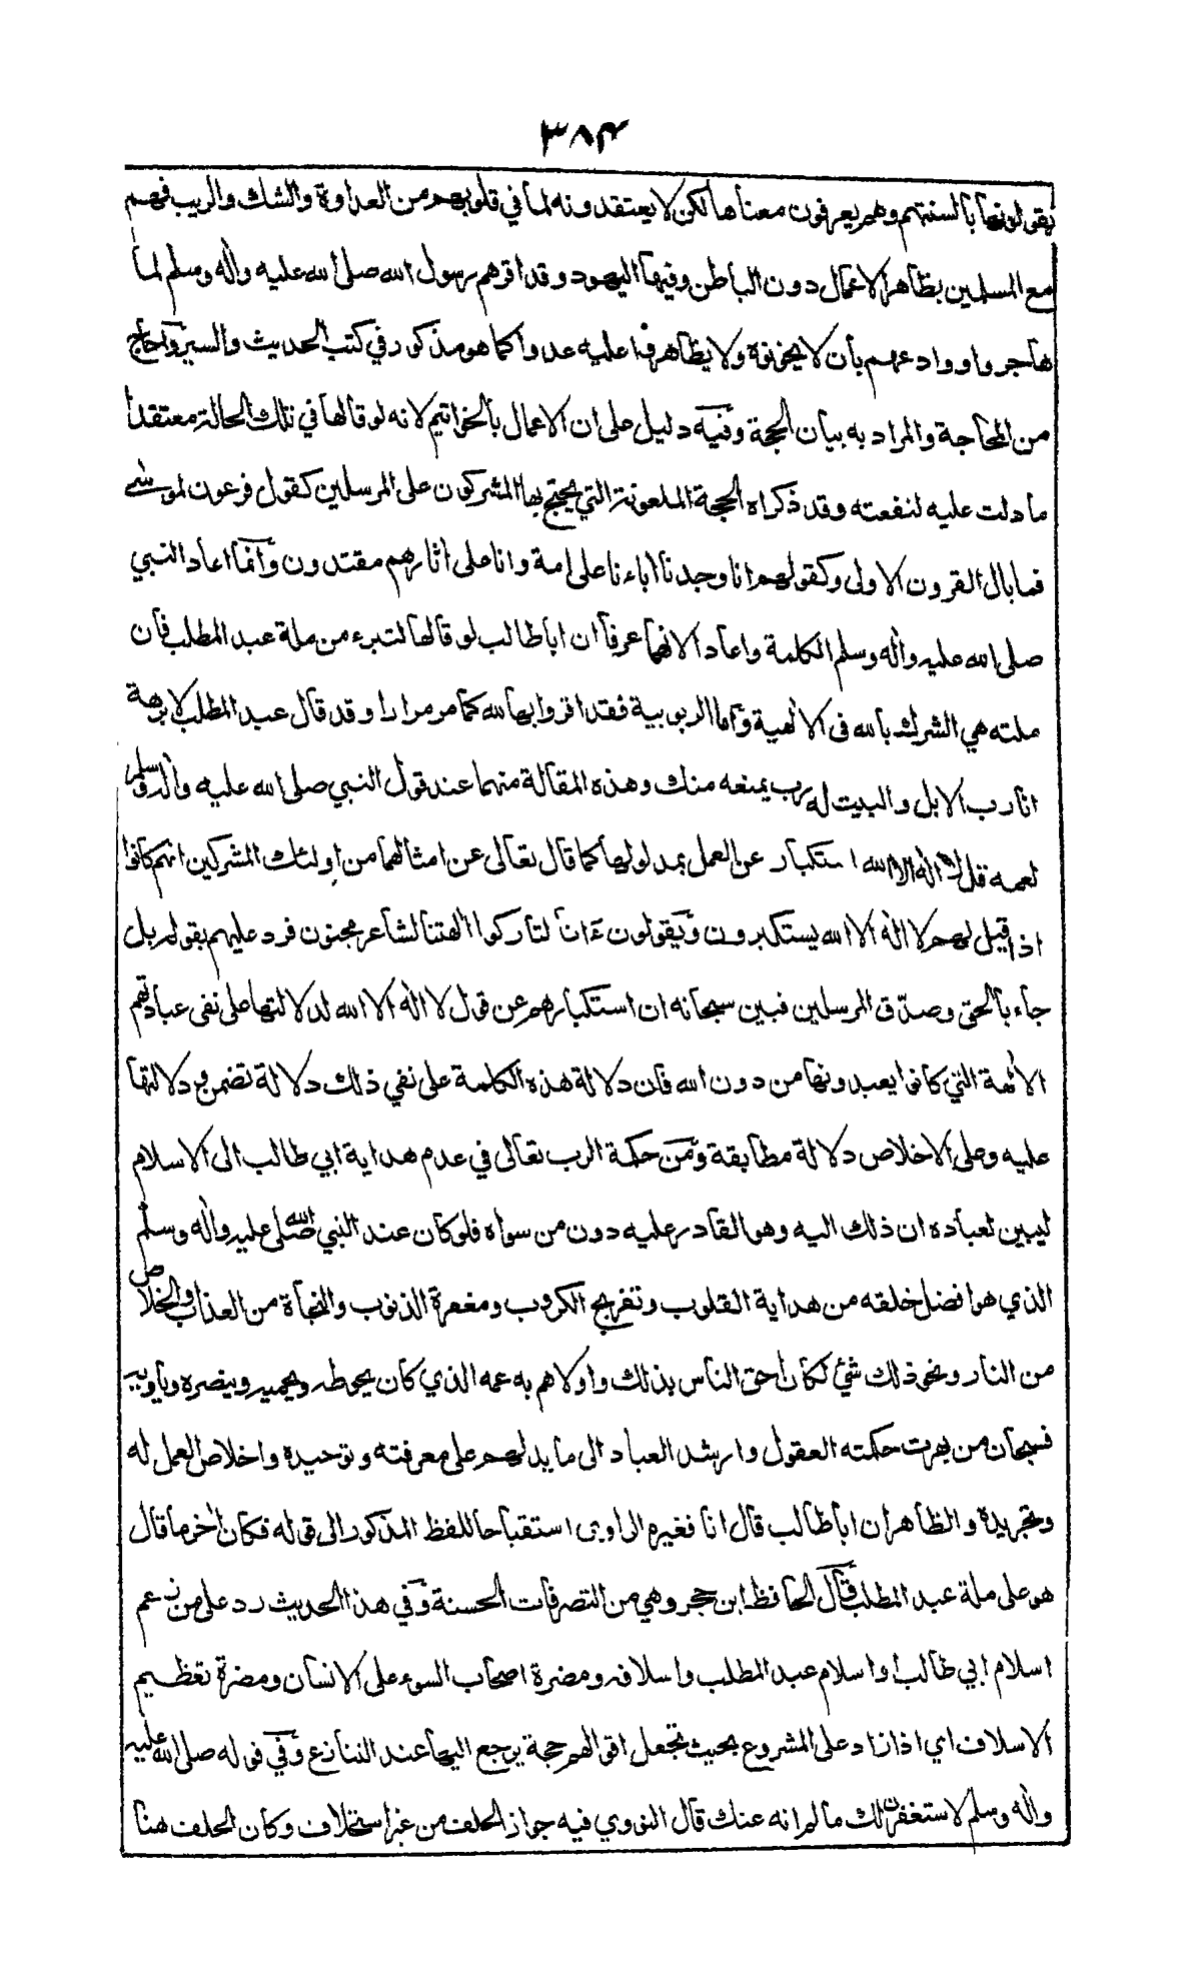 ٣٨٤
يقولونها بالسنتهم وهم يعرفون معناها لكن لا يعتقدونه لما في قلوبهم من العداوة والشك والريب فهم
مع المسلمين بظاهر الاعمال دون الباطن وفيها اليهود وقد اقرهم رسول الله صلى الله عليه واله وسلم لما
هاجر واوادعهم بأن لا يخونوه ولا يظاهروا عليه عدوا كما هو مذكور في كتب الحديث والسير وآحاج
من المحاجة والمراد به بيان الحجة وفيه دليل على ان الاعمال بالخواتيم لانه لو قالها في تلك الحالة معتقدا
ما دلت عليه لنفعته وقد ذكراه الحجة الملعونة التي يحتج بها المشركون على المرسلين كقول فرعون لموسى
فما بال القرون الاولى وكقولهم انا وجدنا اباءنا على امة وانا على اثارهم مقتدون وانما اعاد النبي
صلى الله عليه واله وسلم الكلمة واعاد الانهما عرفا ان ابا طالب لو قالها لتبرء من ملة عبد المطلب فان
ملته هي الشرك بالله فى الالهية واما الربوبية فقد اقروا بها لله كما مر مرارا وقد قال عبد المطلب لابرهة
انا رب الابل والبيت له رب يمنعه منك وهذه المقالة منهما عند قول النبي صلى الله عليه واله وسلم
لعمه قل لا اله الا الله استكبار عن العمل بمدلولها كما قال تعالى عن امثالهما من اولئك المشركين انهم كانوا
اذا قيل لهم لا اله الا الله يستكبرون ويقولون ءانا لتاركوا الهتنا لشاعر مجنون فرد عليهم بقوله بل
جاء بالحق وصدق المرسلين فبين سبحانه ان استكبارهم عن قول لا اله الا الله لدلالتها على نفى عبادتهم
الالهة التي كانوا يعبدونها من دون الله فان دلالة هذه الكلمة على نفي ذلك دلالة تضمن ودلالتها
عليه وعلى الاخلاص دلالة مطابقة ومن حكمة الرب تعالى في عدم هداية ابي طالب الى الاسلام
ليبين لعباده ان ذلك اليه وهو القادر عليه دون من سواه فلو كان عند النبي صلى الله عليه واله وسلم
الذي هو افضل خلقه من هداية القلوب وتفريج الكروب ومغفرة الذنوب والنجاة من العذاب والخلاص
من النار ونحو ذلك شئ لكان احق الناس بذلك واولاهم به عمه الذي كان يحوطه ويحميه وينصره وياويه
فسبحان من بهرت حكمته العقول وارشد العباد الى ما يدلهم على معرفته وتوحيده واخلاص العمل له
وتجريده والظاهر ان ابا طالب قال انا فغيره الراوى استقباحا للفظ المذكور الى قوله فكان اخر ما قال
هو على ملة عبد المطلب قال الحافظ ابن حجر وهي من التصرفات الحسنة وفي هذا الحديث رد على من زعم
اسلام ابي طالب او اسلام عبد المطلب واسلافه ومضرة اصحاب السوء على الانسان ومضرة تعظيم
الاسلاف اي اذا زاد على المشروع بحيث تجعل اقوالهم حجة يرجع اليها عند التنازع وفي قوله صلى الله عليه
واله وسلم لاستغفرن لك ما لم انه عنك قال النووي فيه جواز الحلف من غير استحلاف وكان الحلف هنا